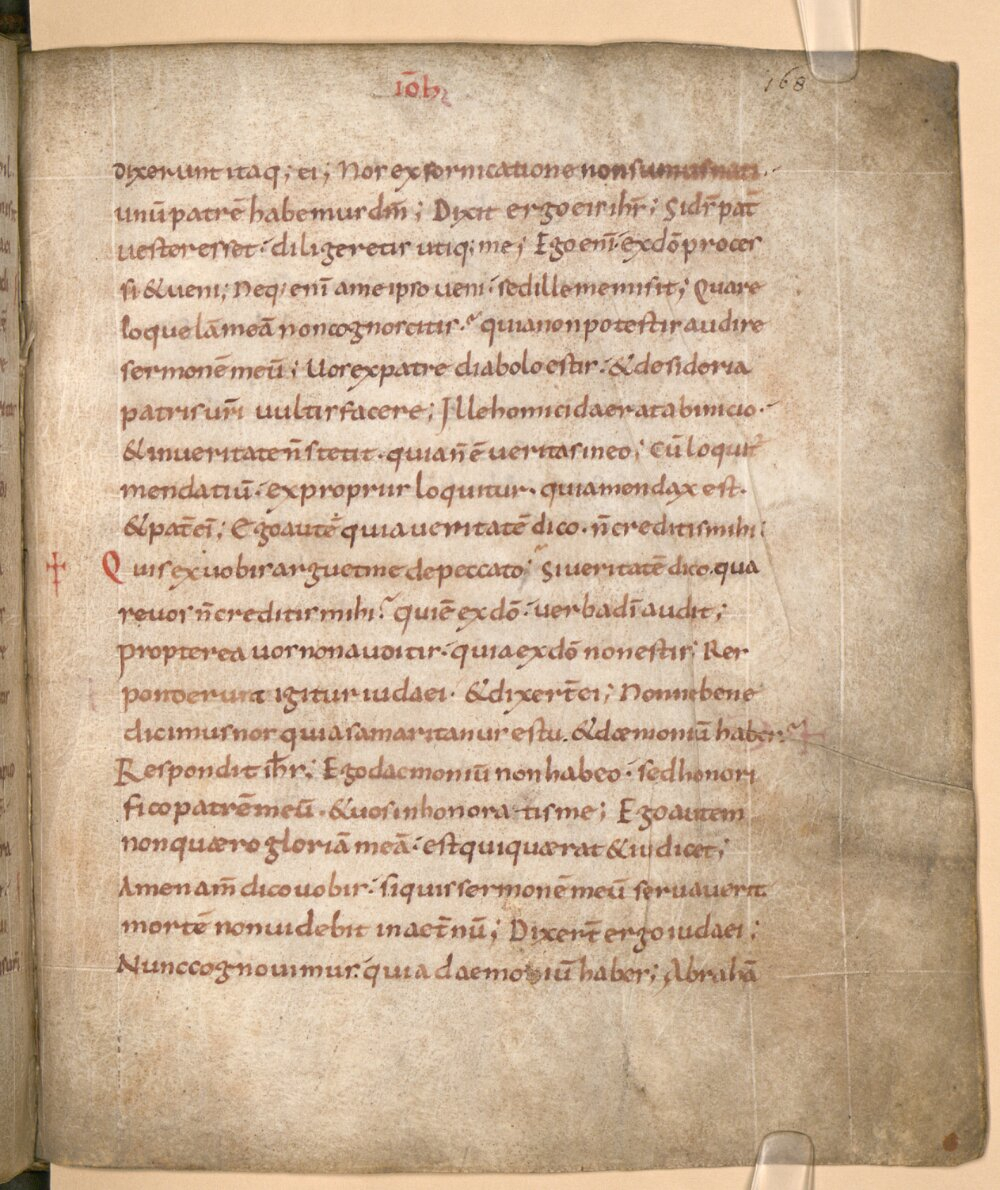 iōh
168
dixerunt itaq; ei; Nos ex fornicatione non sumus nati.
unū patrē habemus dm̄; Dixit ergo eis ihs̄; Si ds̄ pat̄
vester esset· diligeretis utiq; me; Ego eni͞ ex dō proces
si & veni; Neq; eni͞ a me ipso veni· sed ille me misit; Quare
loquelā meā non cognoscitis· quia non potestis audire
sermonē meū; Uos ex patre diabolo estis· & desideria
patris urī vultis facere; Ille homicida erat ab inicio·
& in veritate n̄ stetit· quia n̄ ē veritas in eo; Cū loquit̄
mendatiū· ex propriis loquitur· quia mendax est·
& pat̄ ei͞; Ego autē quia veritatē dico· n̄ creditis mihi;
Quis ex vobis arguet me de peccato; Si veritatē dico qua
re vos n̄ creditis mihi; qui ē ex dō· verba dī audit;
propterea vos non auditis· quia ex dō non estis; Res
ponderunt igitur iudaei· & dixert̄ ei; Nonne bene
dicimus nos quia samaritanus es tu. & dæmoniū habes;
Respondit ihs̄; Ego daemoniū non habeo· sed honori
fico patrē meū· & vos inhonoratis me; Ego autem
non quæro gloriā meā· est qui quærat & iudicet;
Amen am̄ dico vobis· si quis sermonē meū servaverit
mortē non videbit in aet̄nū; Dixert̄ ergo iudaei;
Nunc cognovimus· quia daemoniū habes; Abrahā